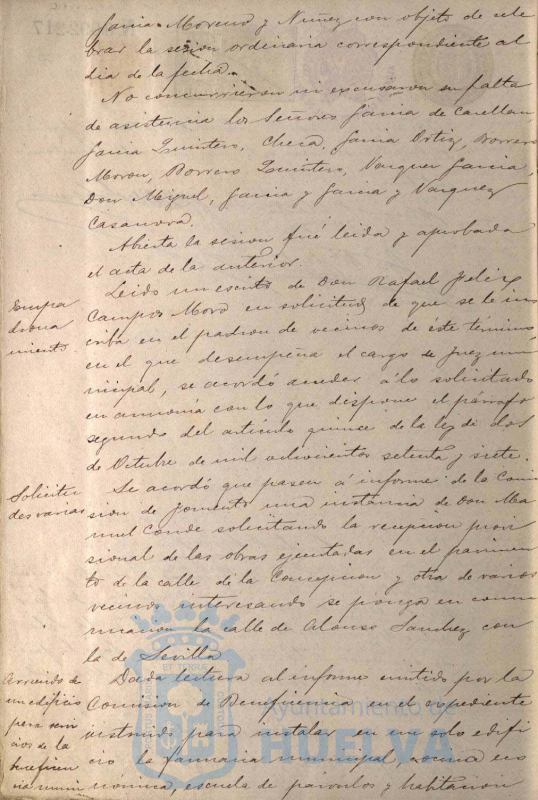 Garcia Moreno y Nuñez con objeto de cele
brar la sesion ordinaria correspondiente al
dia de la fecha.
No concurrieron ni escusaron su falta
de asistencia los Señores Garcia de Castellan
Garcia Quintero, Checa, Garcia Ortiz, Borrero
Moron, Borrero Quintero, Vazquez Garcia,
Don Miguel, Garcia y Garcia y Vazquez
Casanova.
Abierta la sesion fué leida y aprobada
el acta de la anterior.
Empa
drona
miento
Leido un escrito de Don Rafael Feliz
Campos Moro en solicitud de que se le ins
criba en el padron de vecinos de éste término
en el que desempeña el cargo de Juez mu
nicipal, se acordó acceder á lo solicitado
en armonía con lo que dispone el párrafo
segundo del artículo quince de la ley de dos
de Octubre de mil ochocientos setenta y siete.
Solicitu
des varias
Se acordó que pasen á informe de la Comi
sion de fomento una instancia de Don Ma
nuel Conde solicitando la recepcion provi
sional de las obras ejecutadas en el pavimen
to de la calle de la Concepcion y otra de varios
vecinos interesando se ponga en comu
nicacion la calle de Alonso Sanchez con
la de Sevilla
Arriendo de
un edificio
para servi
cios de la
beneficen
cia muni
Dada lectura al informe emitido por la
Comision de Beneficencia en el expediente
instruido para instalar en un solo edifi
cio la farmacia municipal, cocina eco
nómica, escuela de párvulos y habitacion
Ayuntamiento de
HUELVA